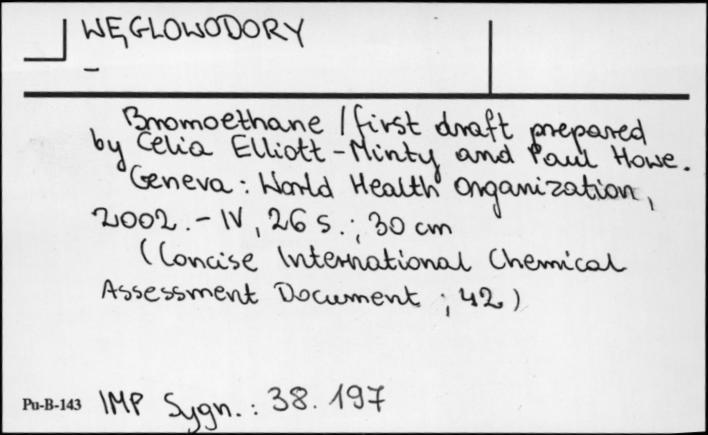 WĘGLOWODORY
–
Bromoethane / first draft prepared
by Celia Elliott-Minty and Paul Howe.
Geneva : World Health Organization,
2002. - IV, 26 s. ; 30 cm
(Concise International Chemical
Assessment Document ; 42)
Pu-B-143 IMP Sygn. : 38.197